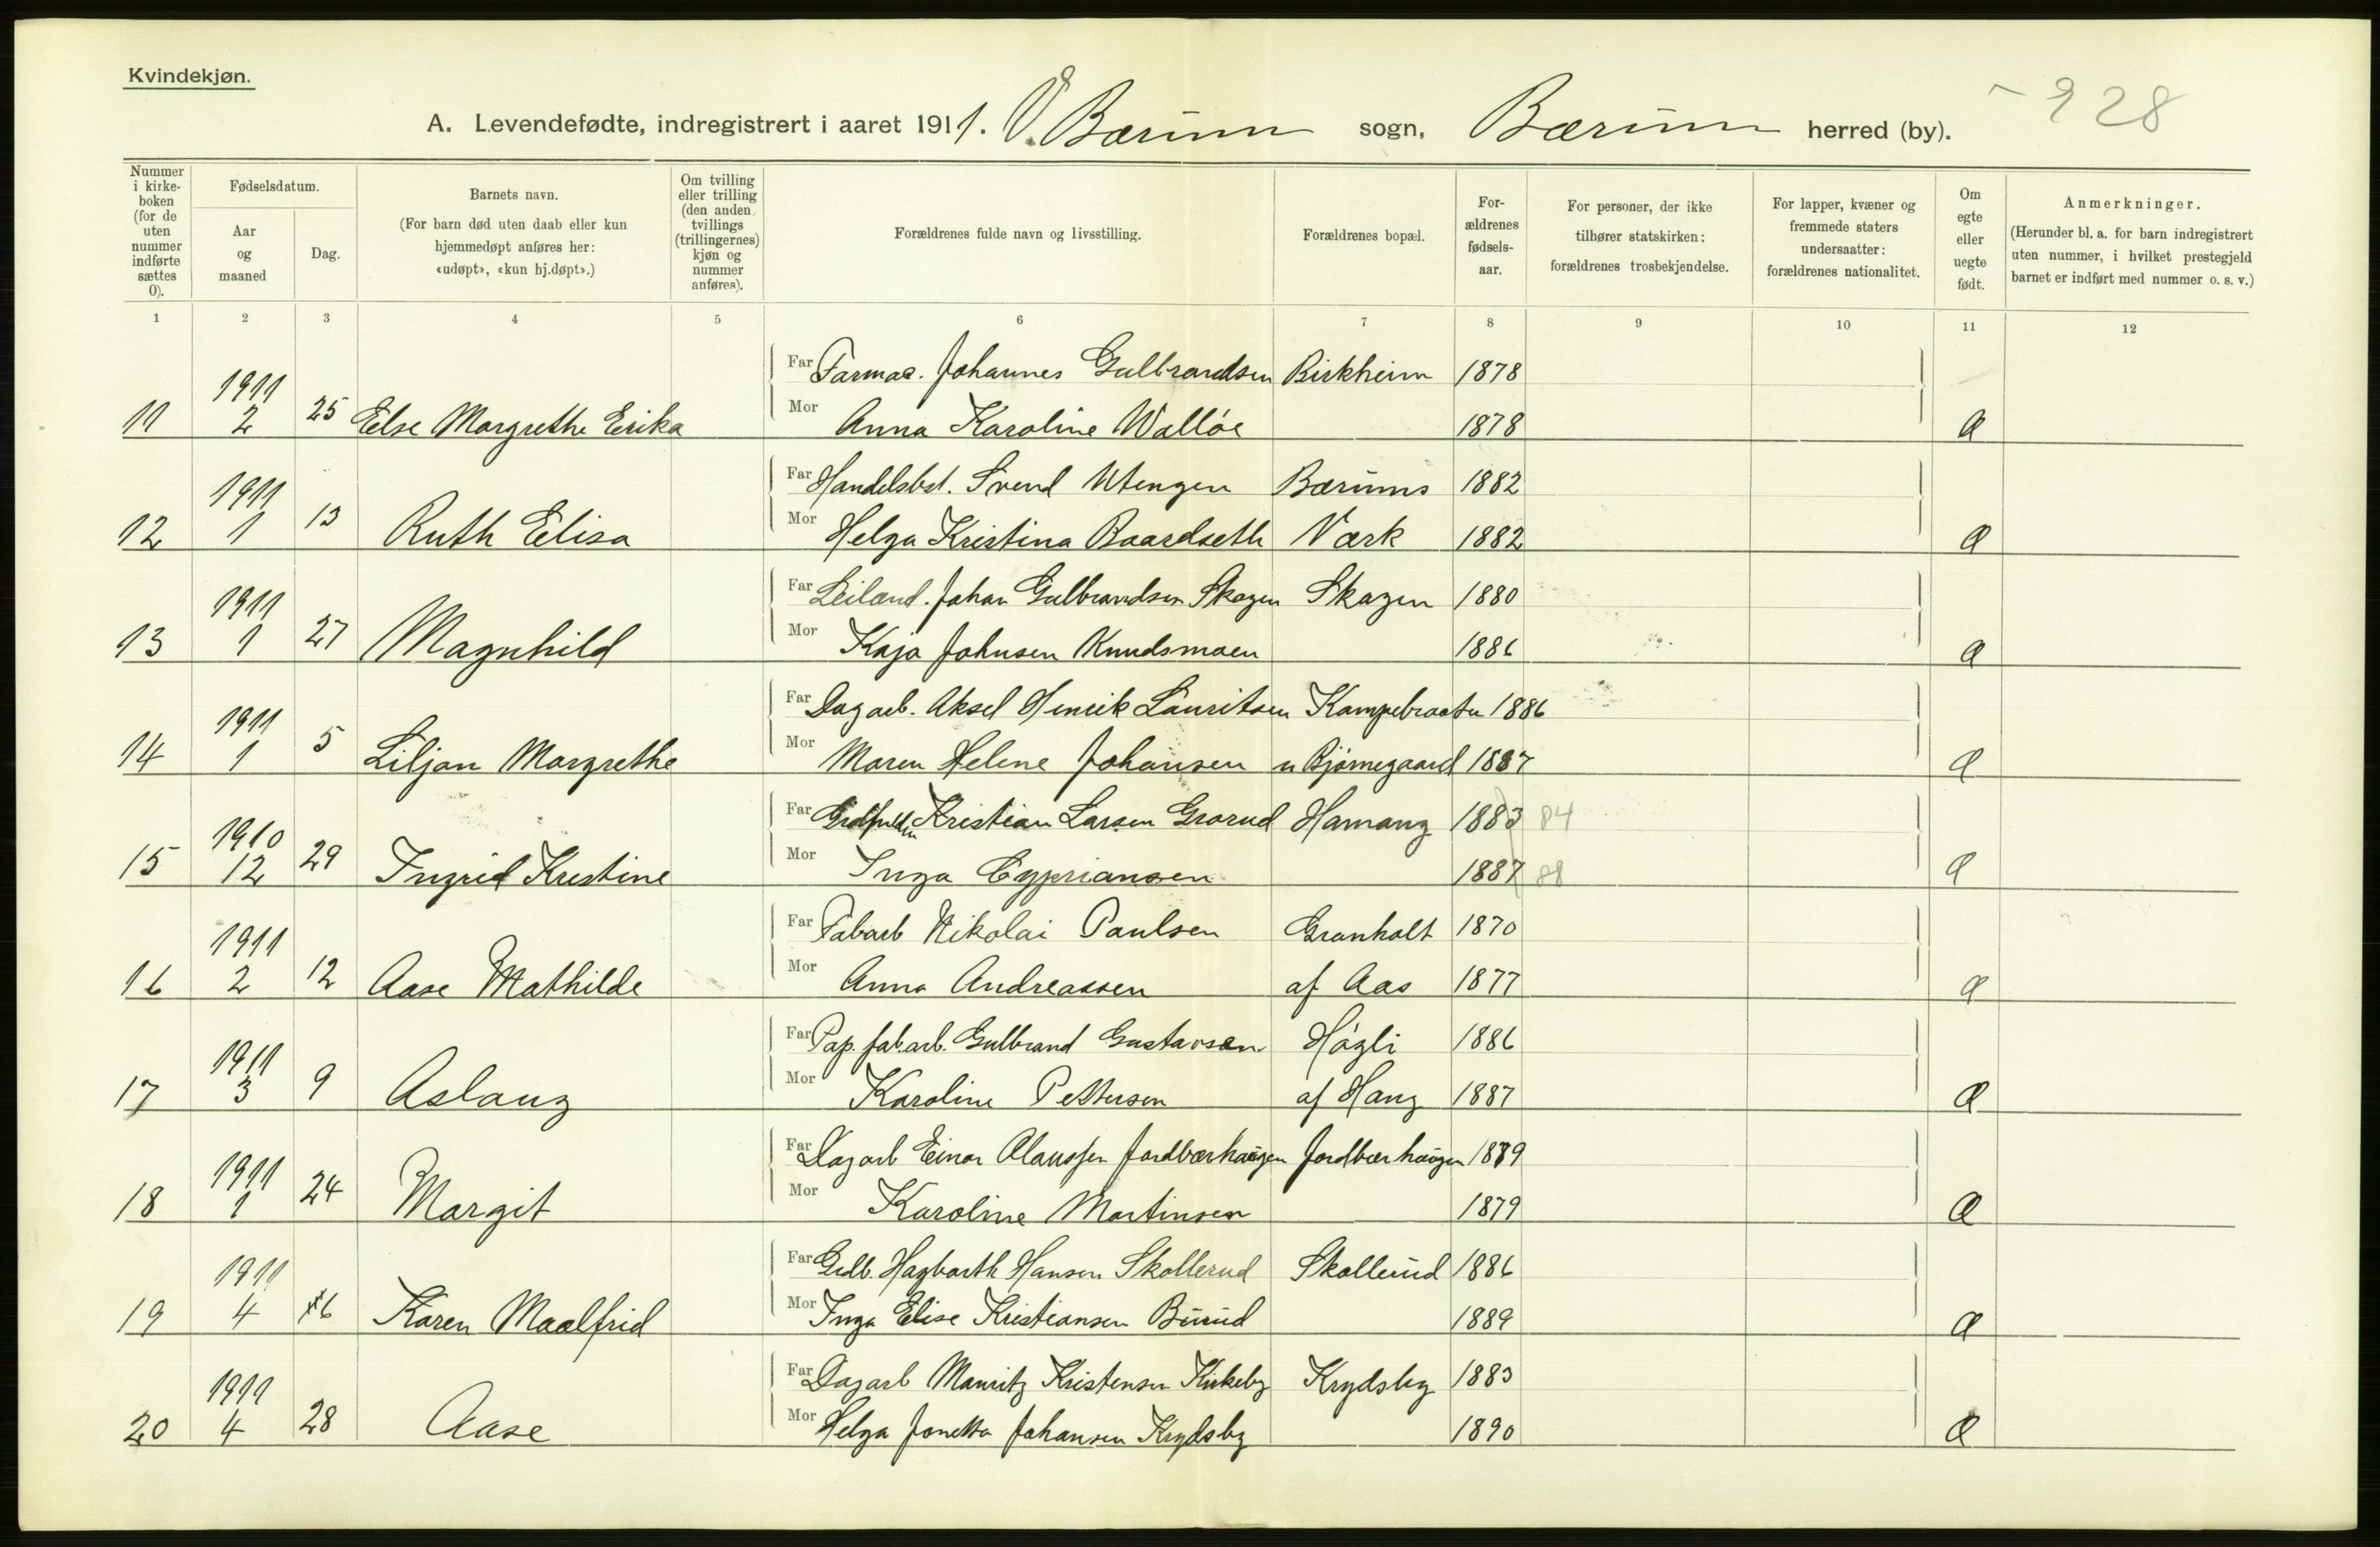 Kvindekjøn.
A. Levendefødte, indregistrert i aaret 1911. V. Bærum sogn, Bærum herred (by).
928
Nummer i kirkeboken (for de uten nummer indførte sættes 0).
Fødselsdatum.
Aar og maaned
Dag.
Barnets navn.
(For barn død uten daab eller kun hjemmedøpt anføres her: «udøpt», «kun hj.døpt».)
Om tvilling eller trilling (den anden tvillings (trillingernes) kjøn og nummer anføres).
Forældrenes fulde navn og livsstilling.
Forældrenes bopæl.
Forældrenes fødselsaar.
For personer, der ikke tilhører statskirken: forældrenes trosbekjendelse.
For lapper, kvæner og fremmede staters undersaatter: forældrenes nationalitet.
Om egte eller uegte født.
Anmerkninger.
(Herunder bl. a. for barn indregistrert uten nummer, i hvilket prestegjeld barnet er indført med nummer o. s. v.)
1 2 3 4 5 6 7 8 9 10 11 12
Far Farmac. Johannes Gulbrandsen Birkheim 1878
11 1911 2 25 Else Margrethe Erika Mor Anna Karoline Walløe 1878 a
Far Handelsbst. Svend Utengen Bærums 1882
12 1911 1 13 Ruth Elisa Mor Helga Kristina Baardseth Værk 1882 a
Far Leilænd. Johan Gulbrandsen Skogen Skogen 1880
13 1911 1 27 Magnhild Mor Kaja Johnsen Knudsmoen 1886 a
Far Dagarb. Aksel Henrik Lauritsen Kampebraaten 1886
14 1911 1 5 Liljan Margrethe Mor Maren Helene Johansen u Bjørnegaard 1887 a
Far Kristian Larsen Grorud Hamang 1883 84
15 1910 12 29 Ingrid Kristine Mor Inga Cypriansen 1887 88 a
Far Fabarb Nikolai Paulsen Granholt 1870
16 1911 2 12 Aase Mathilde Mor Anna Andreassen af Aas 1877 a
Far Pap. fab. arb. Gulbrand Gustavsen Høgli 1886
17 1911 3 9 Aslaug Mor Karoline Pettersen af Haug 1887 a
Far Dagarb Einar Olaussen Jordbærhaugen Jordbærhaugen 1879
18 1911 1 24 Margit Mor Karoline Martinsen 1879 a
Far Grdb. Hagbarth Hansen Skollerud Skollerud 1886
19 1911 4 6 Karen Maalfrid Mor Inga Elise Kristiansen Burud 1889 a
Far Dagarb Mauritz Kristensen Kirkeby Krydsby 1883
20 1911 4 28 Aase Mor Helga Jonetta Johansen Krydsby 1890 a